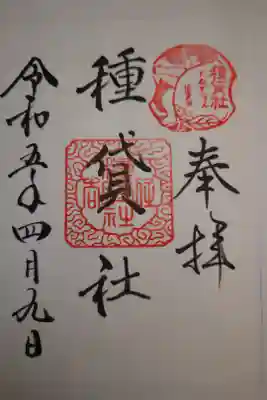 奉拝
種貸社
令和五年四月九日
種貸社